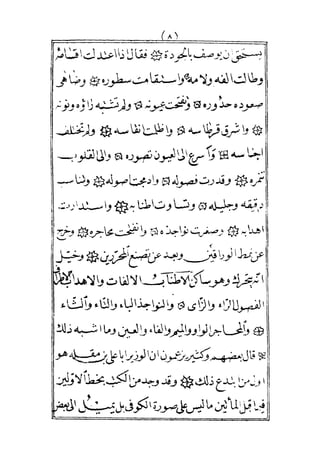 (٨)
يستحق ان يوصف بالجودة فقال اذا اعتدلت اقسامه
وطالت الفه ولامه واستقامت سطوره وضاهى
صعوده حدوره وتفتحت عيونه ولم تشتبه راؤه ونونه
واشرق قرطاسه واظلمت انقاسه ولم تختلف
اجناسه واسرع الى العيون تصوره والى القلوب
تثمره وقدرت فصوله واندمجت اصوله وتناسب
دقيقه وجليله وتساوت اطنابه واستدارت
اهدابه وصغرت نواجذه وانفتحت محاجره وخرج
عن نمط الوراقين وبعد عن تصنع المحررين وخيل
انه يتحرك وهو ساكن الاطناب الالفات والاهداب
الفصول الراء والزاى والنواجذ الباء والتاء والثاء
والمحاجر الواو والميم والفاء والعين وما اشبه ذلك
قال بعضهم وكثير يزعمون ان الوزير ابا على بن مقله هو
اول من ابتدع ذلك وقد وجد من الكتب بخط الاولين
فيما قبل المأتين ما ليس على صورة الكوفى بل يميل الى بعض